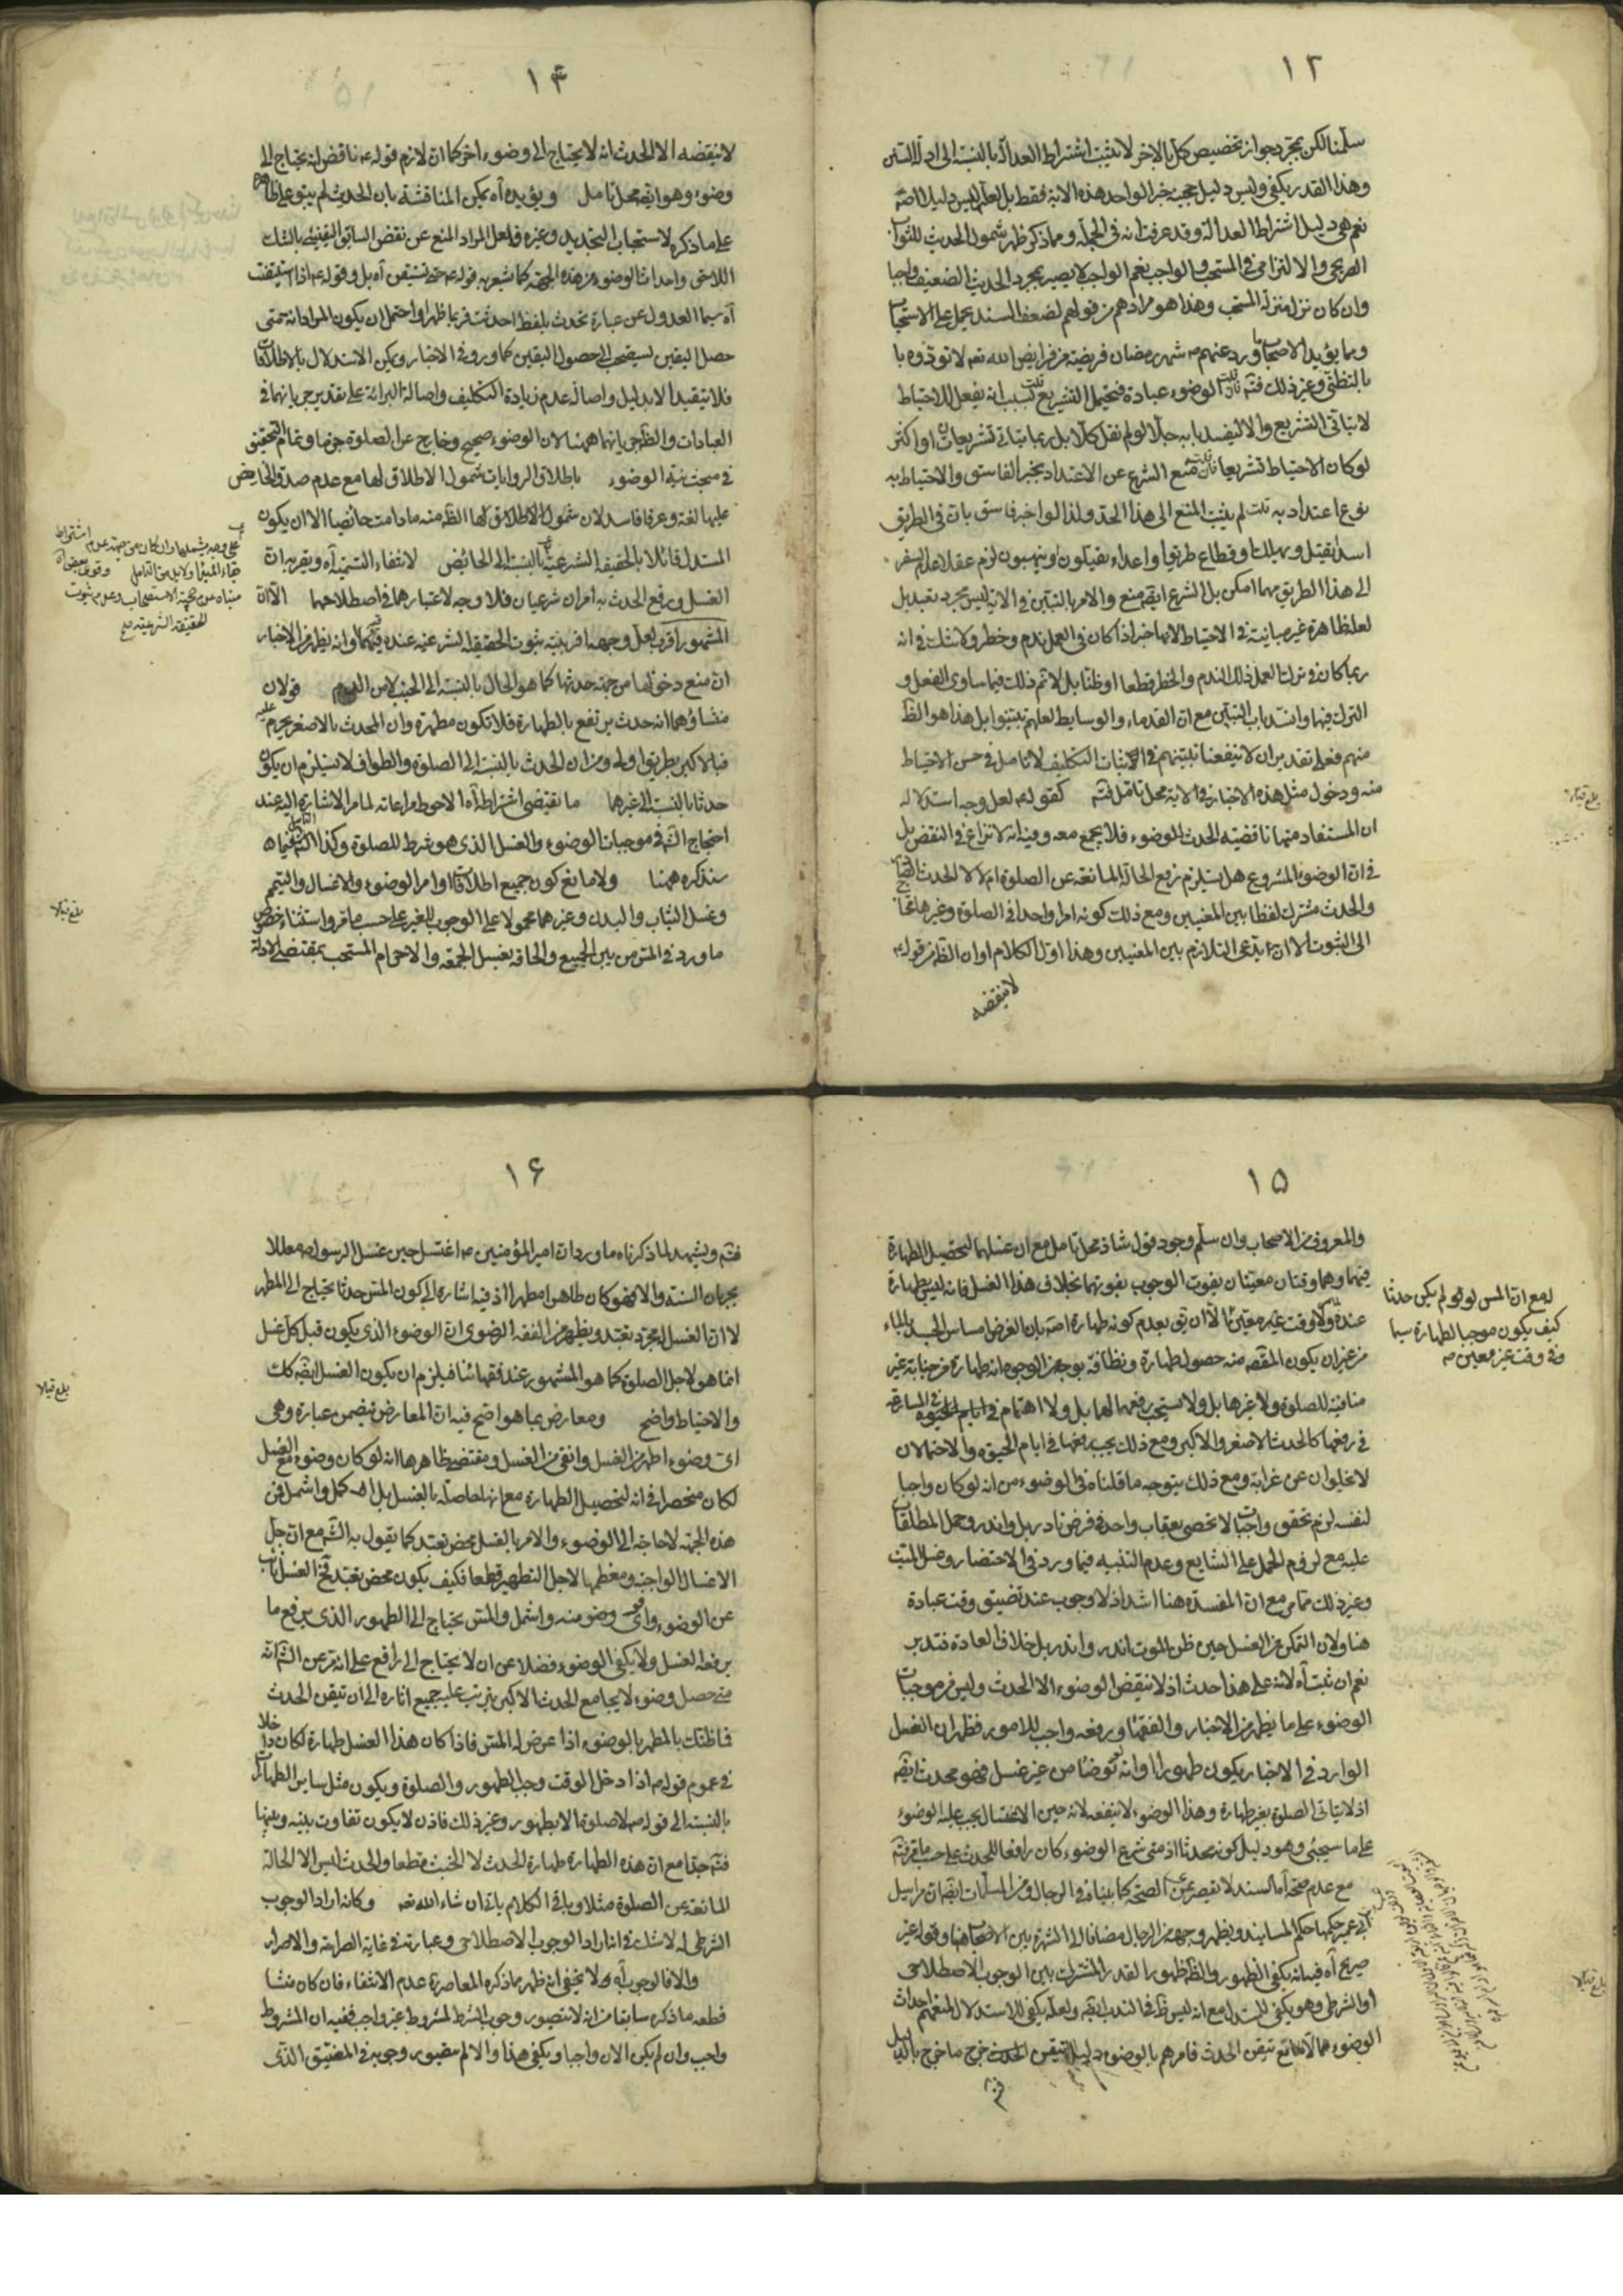 ١٣
سلّمنا لكن بمجرد جواز تخصيص كل بالاخر لا يثبت اشتراط العدالة بالنسبة الى ادلة السنن
وهذا القدر يكفي وليس دليل حجية خبر الواحد هذه الاية فقط بل لعله ليس دليلا اصلا
نعم هي دليل اشتراط العدالة وقد عرفت انه في الجملة ومما ذكر ظهر شمول الحديث للثواب
الصريحي والالتزامي في المستحب والواجب نعم الواجب لا يصير بمجرد الحديث الضعيف واجبا
وان كان نزل منزلة المستحب وهذا هو مرادهم من قولهم لضعف السند يحمل على الاستحباب
ومما يؤيد الاصحاب ما ورد عنهم شهر رمضان فريضة من فرايض الله تعالى فلا تؤدوه با
بالتظني وغير ذلك فتم الوضوء عبادة فيحتمل التشريع قلت بسبب انه يفعل للاحتياط
لا يتأتى التشريع والا ليفسد بابه جلا لو لم نقل كلا بل ربما يتأتى تشريعات او اكثر
لو كان الاحتياط تشريعا منع الشرع عن الاعتداد بخبر الفاسق والاحتياط به
نوع اعتداد به قلت لم يثبت المنع الى هذا الحد ولذا لو اخبر فاسق بان في الطريق
اسدا يقتل ويهلك او قطاع طريق او اعداء يقتلون او ينهبون لزم عقلا عدم السفر
الى هذا الطريق مهما امكن بل الشرع ايضا منع والامر بالتبين في الاية ليس مجرد تعبد بل
لعلة ظاهرة غير مباينة في الاحتياط لانها خبر اذا كان في العمل ندم وخطر ولا شك في انه
ربما كان في ترك العمل ذلك الندم والخطر قطعا او ظنا بل لا تم ذلك فيما ساوى الفعل و
الترك فيها وانسد باب التبين مع ان القدماء والوسايط لعلهم تبينوا بل هذا هو الظ
منهم فعلى تقدير ان لا ينفعنا تبينهم في اثبات التكليف لا تامل في حسن الاحتياط
منه ودخول مثل هذه الاخبار في الاية محل تامل فتم كقوله لعل وجه استدلاله
ان المستفاد منها ناقضية الحدث للوضوء فلا يجمع معه وفيه انه لا نزاع في النقض بل
في ان الوضوء المشروع هل يستلزم رفع الحالة المانعة عن الصلوة ام لا لا الحدث
والحدث مشترك لفظا بين المعنيين ومع ذلك كونه امرا واحدا في الصلوة وغيرها
الى الثبوت الا ان يدعى التلازم بين المعنيين وهذا اول الكلام او ان الظ من قوله
لا ينقضه
١٤
لا ينقضه الا الحدث انه لا يحتاج الى وضوء اخر كما ان لازم قوله ناقض انه يحتاج الى
وضوء وهو ايضا محل تامل ويؤيده انه يمكن المناقشة بان الحديث لم يبق على ظاهره
على ما ذكره لاستحباب التجديد وغيره ولعل المراد المنع عن نقض السابق اليقيني بالشك
اللاحق واحداث الوضوء من هذه الجهة كما يشعر به قوله حتى تستيقن آه بل وقوله اذا استيقنت
آه سيما العدول عن عبارة تحدث بلفظ احدثت فربما ظهر او احتمل ان يكون المراد انه متى
حصل اليقين يستصحب الى حصول اليقين كما ورد في الاخبار ويمكن الاستدلال بالاطلاقات
فلا يتقيد الا بدليل واصالة عدم زيادة التكليف واصالة البرائة على تقدير جريانهما في
العبادات والظ جريانهما ههنا لان الوضوء صحيح وخارج عن الصلوة جزما وتمام التحقيق
في مبحث نية الوضوء باطلاق الروايات شمول الاطلاق لها مع عدم صدق الحايض
عليها لغة وعرفا فاسد لان شمول الاطلاق لها الظ منه ما دامت حائضا الا ان يكون
المستدل قائلا بالحقيقة الشرعية بالنسبة الى الحائض لانتفاء التسمية آه ويقربه ان
الغسل ورفع الحدث به امران شرعيان فلا وجه لاعتبارهما في اصطلاحها الا ان
المشهور اقرب لعل وجهه اقربية ثبوت الحقيقة الشرعية عنده فيهما وانه يظهر من الاخبار
ان منع دخولها من جهة حدثها كما هو الحال بالنسبة الى الجنب لا من الدم قوله لان
منشاؤهما انه حدث يرتفع بالطهارة فلا تكون مطهرة وان المحدث بالاصغر يحرم عليه
فبالاكبر بطريق اولى ومن ان الحدث بالنسبة الى الصلوة والطواف لا يستلزم ان يكون
حدثا بالنسبة الى غيرها ما يقتضي اشتراطه آه الاحوط مراعاته لما مر الاشارة اليه عند
احتجاج الشم في موجبات الوضوء والغسل الذي هو شرط للصلوة وكذا التامل فيما
سنذكره ههنا ولا مانع كون جميع اطلاقات اوامر الوضوء والاغسال والتيمم
وغسل الثياب والبدن وغيرهما محمولا على الوجوب للغير على حسب ما مر واستثناء خصوص
ما ورد في المس من بين الجميع والحاقه بغسل الجمعة والاحرام المستحب بمقتضى الادلة
على وجه يشملها وان كان من جهة عدم اشتراط
بقاء المبدأ ولا يخلو من التامل وقوله بمعنى آه
مبناه عدم حجية الاستصحاب وعدم ثبوت
الحقيقة الشرعية منه
بلغ قبالا
بلغ قبالا
١٥
والمعروف من الاصحاب وان سلم وجود قول شاذ محل تامل مع ان غسلهما لتحصيل الطهارة
فيهما وهما وقتان معينان بفوت الوجوب بفوتهما بخلاف هذا الغسل فانه ليس طهارة
عنده ولا وقت غير معين الا ان يق بعدم كونه طهارة اصلا بان الغرض مساس الجسد بالماء
من غير ان يكون المقصود منه حصول طهارة ونظافة بوجه من الوجوه انه طهارة من جنابة غير
منافية للصلوة ولا غيرها بل ولا يستحب رفعها لها بل ولا اهتمام في ايام الحيوة في المسارعة
في رفعها كالحدث الاصغر والاكبر ومع ذلك يجب رفعها في ايام الحيوة والاحتمالان
لا يخلوان عن غرابة ومع ذلك يتوجه ما قلناه في الوضوء من انه لو كان واجبا
لنفسه لزم تحقق واجبات لا تحصى بعقاب واحد في فرض نادر بل واندر وحمل المطلقات
عليه مع لزوم الحمل على الشايع وعدم التنبيه فيما ورد في الاحتضار وغسل الميت
وغير ذلك مما مر مع ان المفسدة هنا اشد اذ لا وجوب عند تضيق وقت عبادة
هنا ولان التمكن من الغسل حين ظن الموت اندر واندر بل خلاف العادة فتدبر
نعم ان ثبت آه لانه على هذا حدث اذ لا ينقض الوضوء الا الحدث وليس من موجبات
الوضوء على ما يظهر من الاخبار والفقهاء ورفعه واجب للامور فظهر ان الغسل
الوارد في الاخبار يكون طهورا وانه لو توضأ من غير غسل فهو محدث ايضا
اذ لا يتأتى الصلوة بغير طهارة وهذا الوضوء لا ينفعه لانه حين الاغتسال يجب عليه الوضوء
على ما سيجئ وهو دليل كونه محدثا اذ متى شرع الوضوء كان رافعا للحدث على حسب ما عرفته
مع عدم صحة آه السند لا يقصر عن الصحة كما بيناه في الرجال ومن المسلمات ايضا ان مراسيل
ابي عمير حكمها حكم المسانيد ويظهر وجهه من الرجال مضافا الى الشهرة بين الاصحاب وقوله غير
صريح آه فيه انه يكفي الظهور والظ ظهور القدر المشترك بين الوجوب الاصطلاحي
او الشرطي وهو يكفي للمستدل مع انه ليس ظ في الندب ايضا ولعله يكفي للاستدلال لمنعهم احداث
الوضوء الا مع تيقن الحدث فامرهم بالوضوء دليل تيقن الحدث خرج ما خرج بالدليل
فتم
لو مع ان المس لو لم يكن حدثا
كيف يكون موجبا لطهارة سيما
وفي وقت غير معين منه
١٦
فتم ويشهد لما ذكرناه ما ورد ان امير المؤمنين اغتسل حين غسل الرسول معللا
بجريان السنة والا فهو كان طاهرا مطهرا اذ فيه اشارة الى كون المس حدثا يحتاج الى المطهر
لا ان الغسل لمجرد تعبد ويظهر من الفقه الرضوي ان الوضوء الذي يكون قبل كل غسل
انما هو لاجل الصلوة كما هو المشهور عند فقهائنا فيلزم ان يكون الغسل ايضا كك
والاحتياط واضح ومعارض بما هو اضح فيه ان المعارض تضمن عبارة وهي
اي وضوء اطهر من الغسل وانقى من الغسل ومقتضى ظاهرها انه لو كان وضوء مع الغسل
لكان منحصرا في انه لتحصيل الطهارة مع انها حاصلة بالغسل بل اكمل واشمل فمن
هذه الجهة لا حاجة الى الوضوء والامر بالغسل محض تعبد كما يقول به الشم مع ان جل
الاغسال الواجبة ومعظمها لاجل التطهير قطعا فكيف يكون محض تعبد فح الغسل ناب
عن الوضوء واي وضوء منه واشمل والمس يحتاج الى الطهور الذي يرفع ما
يرفعه الغسل ولا يكفي الوضوء فضلا عن ان لا يحتاج الى رافع على انه مر عن الشم انه
متى حصل وضوء لا يجامع الحدث الاكبر يترتب عليه جميع اثاره الى ان تيقن الحدث
فما ظنك بالمطهر بالوضوء اذا عرض له المس فاذا كان هذا الغسل طهارة لكان داخلا
في عموم قوله اذا دخل الوقت وجب الطهور والصلوة ويكون مثل ساير الطهارات
بالنسبة الى قوله لا صلوة الا بطهور وغير ذلك فاذن لا يكون تفاوت بينه وبينها
فتم جدا مع ان هذه الطهارة طهارة الحدث لا الخبث قطعا والحدث ليس الا الحالة
المانعة عن الصلوة مثلا وباقي الكلام ياتي ان شاء الله تعالى وكانه اراد الوجوب
الشرطي له لا شك في انه اراد الوجوب الاصطلاحي وعبارته في غاية الصراحة والاصرار
والا فالوجوب آه ولا يخفى انه ظهر مما ذكره المعاصرة عدم الانتفاء فان كان منشا
قطعه ما ذكره سابقا من انه لا يتصور وجوب الشرط لمشروط غير واجب ففيه ان المشروط
واجب وان لم يكن الان واجبا ويكفي هذا والا لم يتصور وجوبه في المضيق الذي
بلغ قبالا